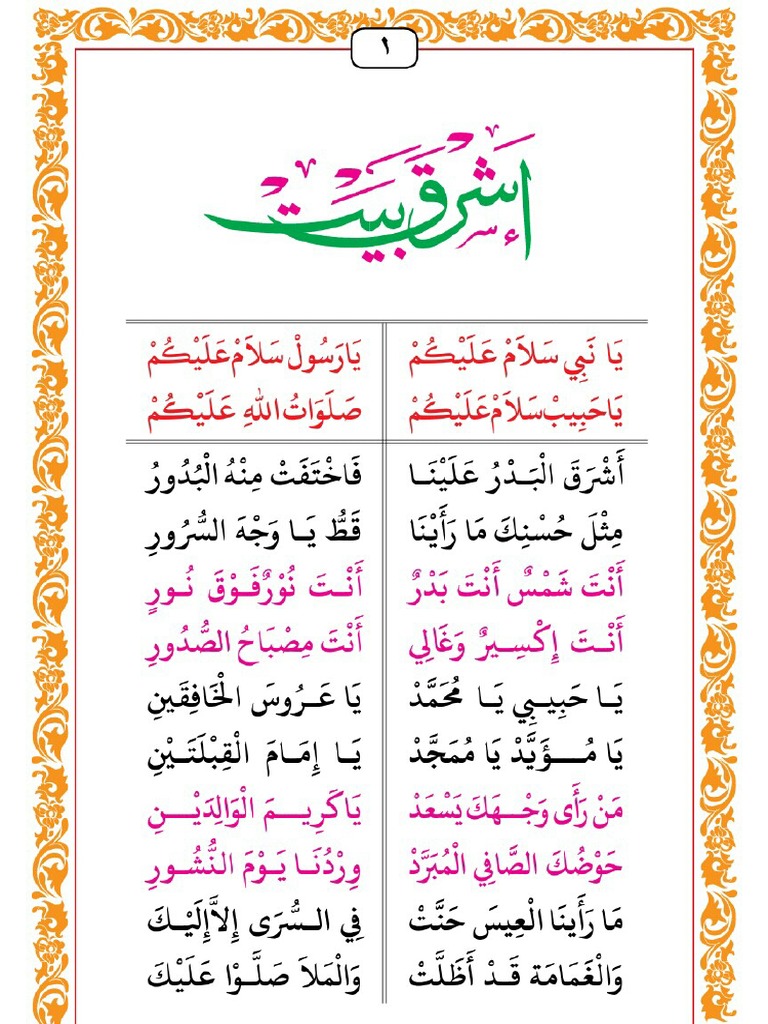 ١
اَشْرَقَ بَيْتْ
يَا نَبِي سَلاَمْ عَلَيْكُمْ يَارَسُولْ سَلاَمْ عَلَيْكُمْ
يَاحَبِيبْ سَلاَمْ عَلَيْكُمْ صَلَوَاتُ اللهِ عَلَيْكُمْ
أَشْرَقَ الْبَـدْرُ عَلَيْنَـا فَاخْتَفَتْ مِنْهُ الْبُدُورُ
مِثْلَ حُسْنِكَ مَا رَأَيْنَا قَطُّ يَـا وَجْهَ السُّرُورِ
أَنْتَ شَمْسٌ أَنْتَ بَدْرٌ أَنْـتَ نُوْرٌفَـوْقَ نُـورٍ
أَنْـتَ إِكْسِـيرٌ وَغَالِي أَنْتَ مِصْبَاحُ الصُّدُورِ
يَـا حَبِيـبِي يَـا مُحَمَّدْ يَا عَـرُوسَ الْخَافِقَينِ
يَا مُـؤَيَّدْ يَا مُمَجَّدْ يَـا إِمَـامَ الْقِبْلَتَـيْنِ
مَنْ رَأَى وَجْـهَكَ يَسْعَدْ يَاكَرِيـمَ الْوَالِدَيْـنِ
حَوْضُكَ الصَّافِي الْمُبَرَّدْ وِرْدُنَـا يَـوْمَ النُّشُـورِ
مَا رَأَينَا الْعِيسَ حَنَّتْ فِي السُّرَى إِلاَّإِلَيْـكَ
وَالْغَمَامَة قَـدْ أَظَلَّتْ وَالْمَلاَ صَلَّـوْا عَلَيْكَ